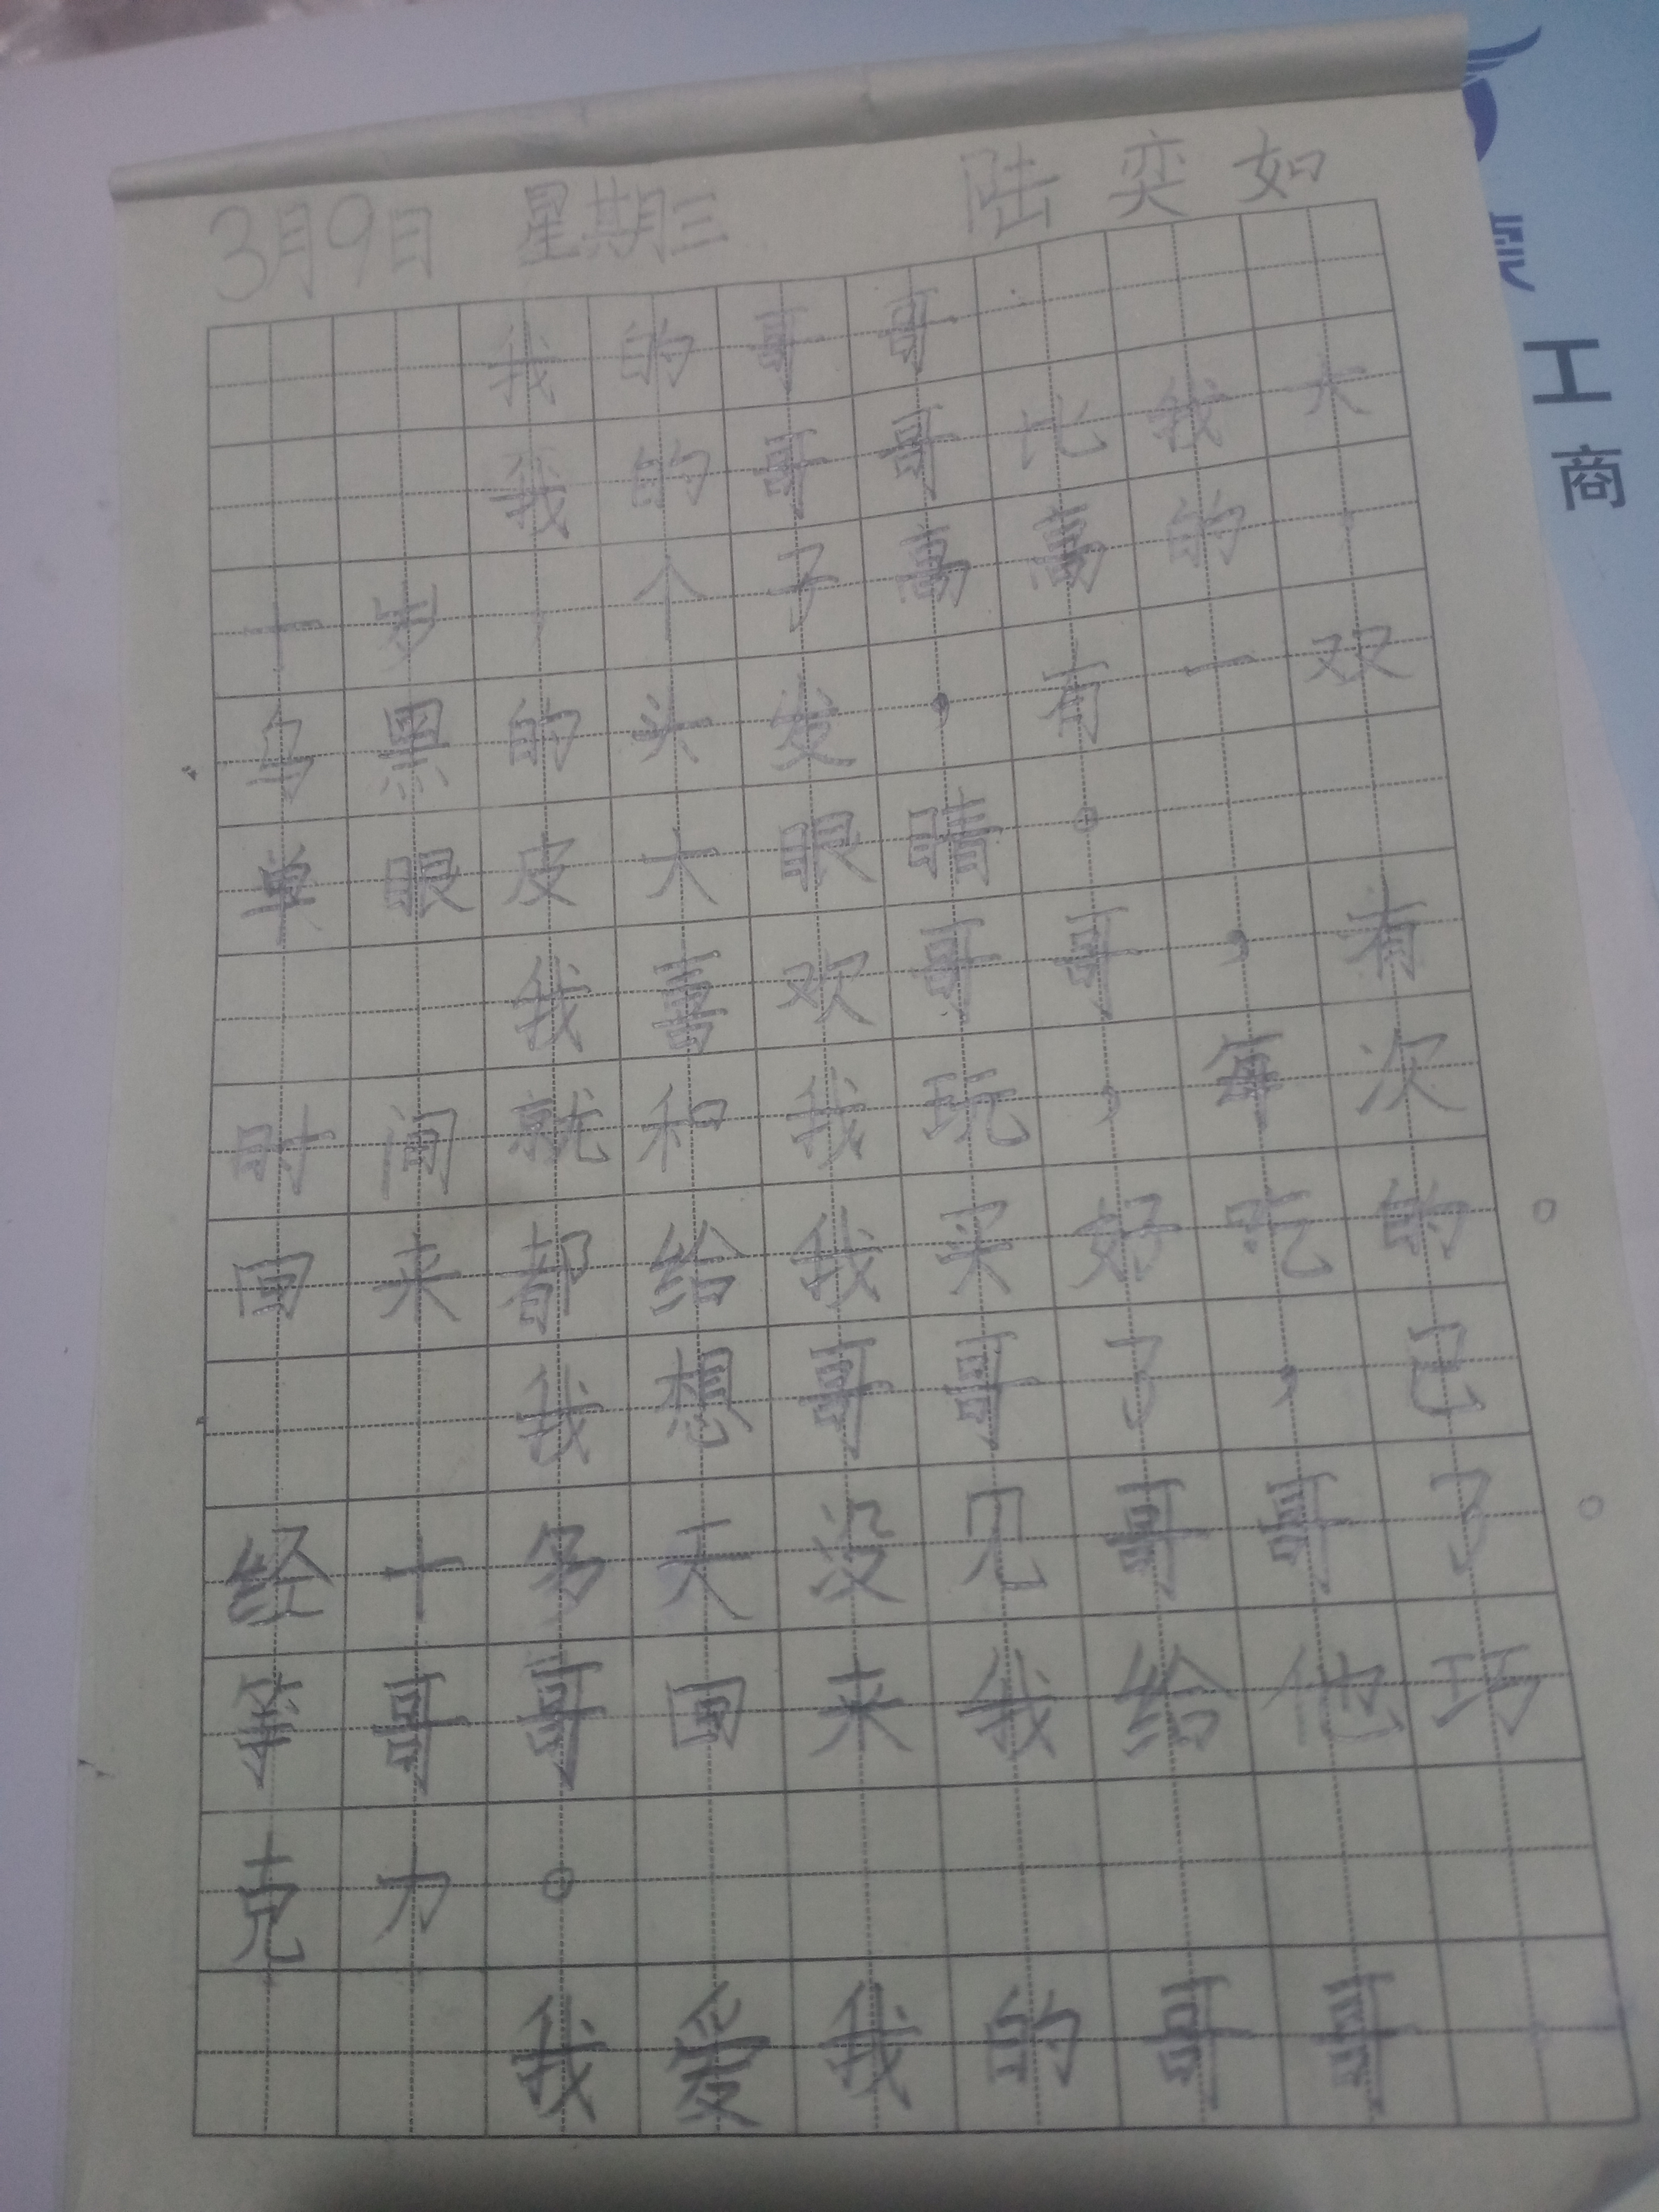 3月9日 星期三 陆奕如
我的哥哥
我的哥哥比我大
十岁，个子高高的，
乌黑的头发，有一双
单眼皮大眼睛。
我喜欢哥哥，有
时间就和我玩，每次
回来都给我买好吃的。
我想哥哥了，已
经十多天没见哥哥了。
等哥哥回来我给他巧
克力。
我爱我的哥哥
工
商